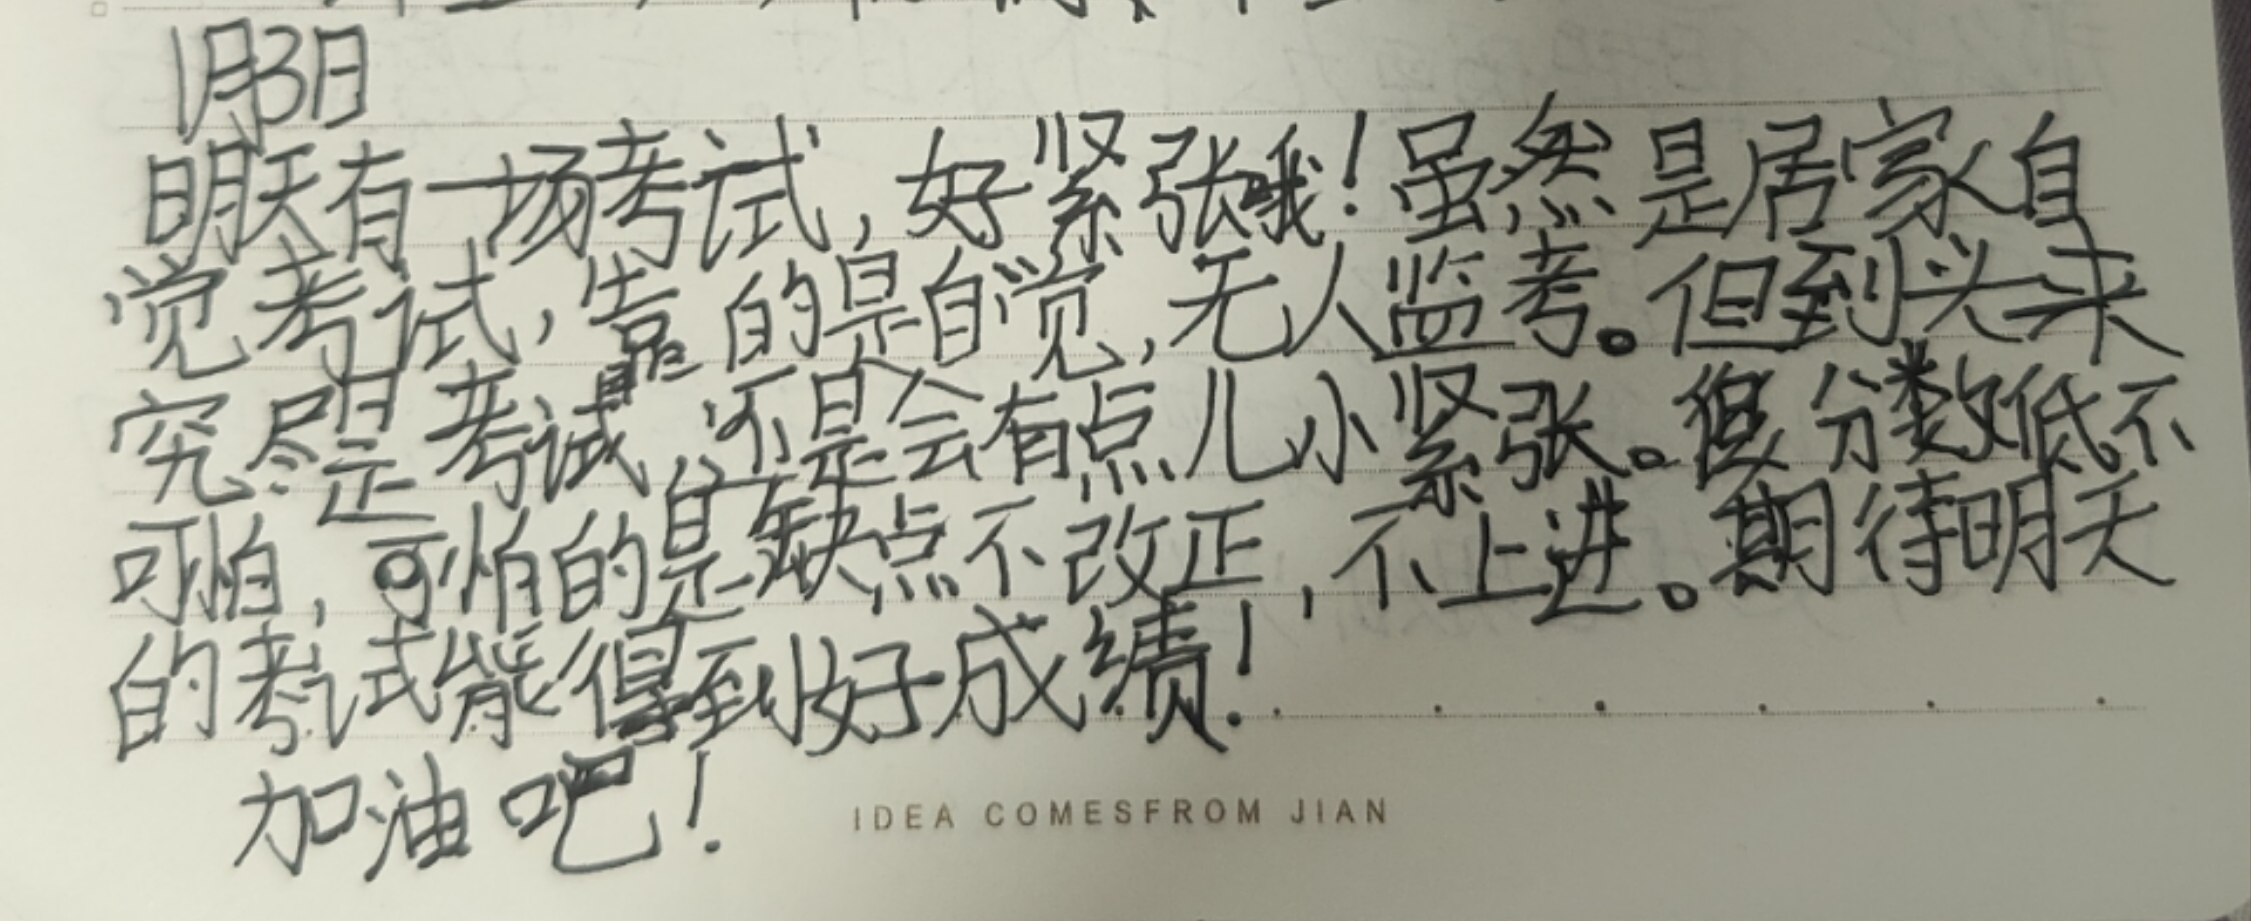 1月3日
明天有一场考试，好紧张哦！虽然是居家自
觉考试，靠的是自觉，无人监考。但到头来
究尽是考试，还是会有点儿小紧张。但分数低不
可怕，可怕的是缺点不改正，不上进。期待明天
的考试能得到好成绩！
加油吧！
IDEA COMESFROM JIAN